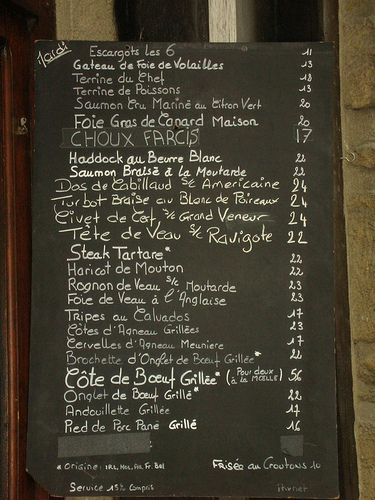 Mardi
Escargots les 6 11
Gateau de Foie de Volailles 13
Terrine du Chef 18
Terrine de Poissons 13
Saumon Cru Mariné au Citron Vert 20
Foie Gras de Canard Maison 20
CHOUX FARCIS 17
Haddock au Beurre Blanc 22
Saumon Braisé à la Moutarde 22
Dos de Cabillaud s/c Americaine 24
Turbot Braise au Blanc de Poireaux 24
Civet de Cerf s/c Grand Veneur 24
Tête de Veau s/c Ravigote 22
Steak Tartare* 22
Haricot de Mouton 22
Rognon de Veau s/c Moutarde 23
Foie de Veau à l'Anglaise 23
Tripes au Calvados 17
Côtes d'Agneau Grillées 23
Cervelles d'Agneau Meuniere 17
Brochette d'Onglet de Bœuf Grillée* 22
Côte de Bœuf Grillée* (Pour deux à la MOELLE) 56
Onglet de Bœuf Grillé* 22
Andouillette Grillée 17
Pied de Porc Pané Grillé 16
* Origine: IRL, Hol, All, Fr, Bel
Frisée au Croutons 10
Service 15% Compris